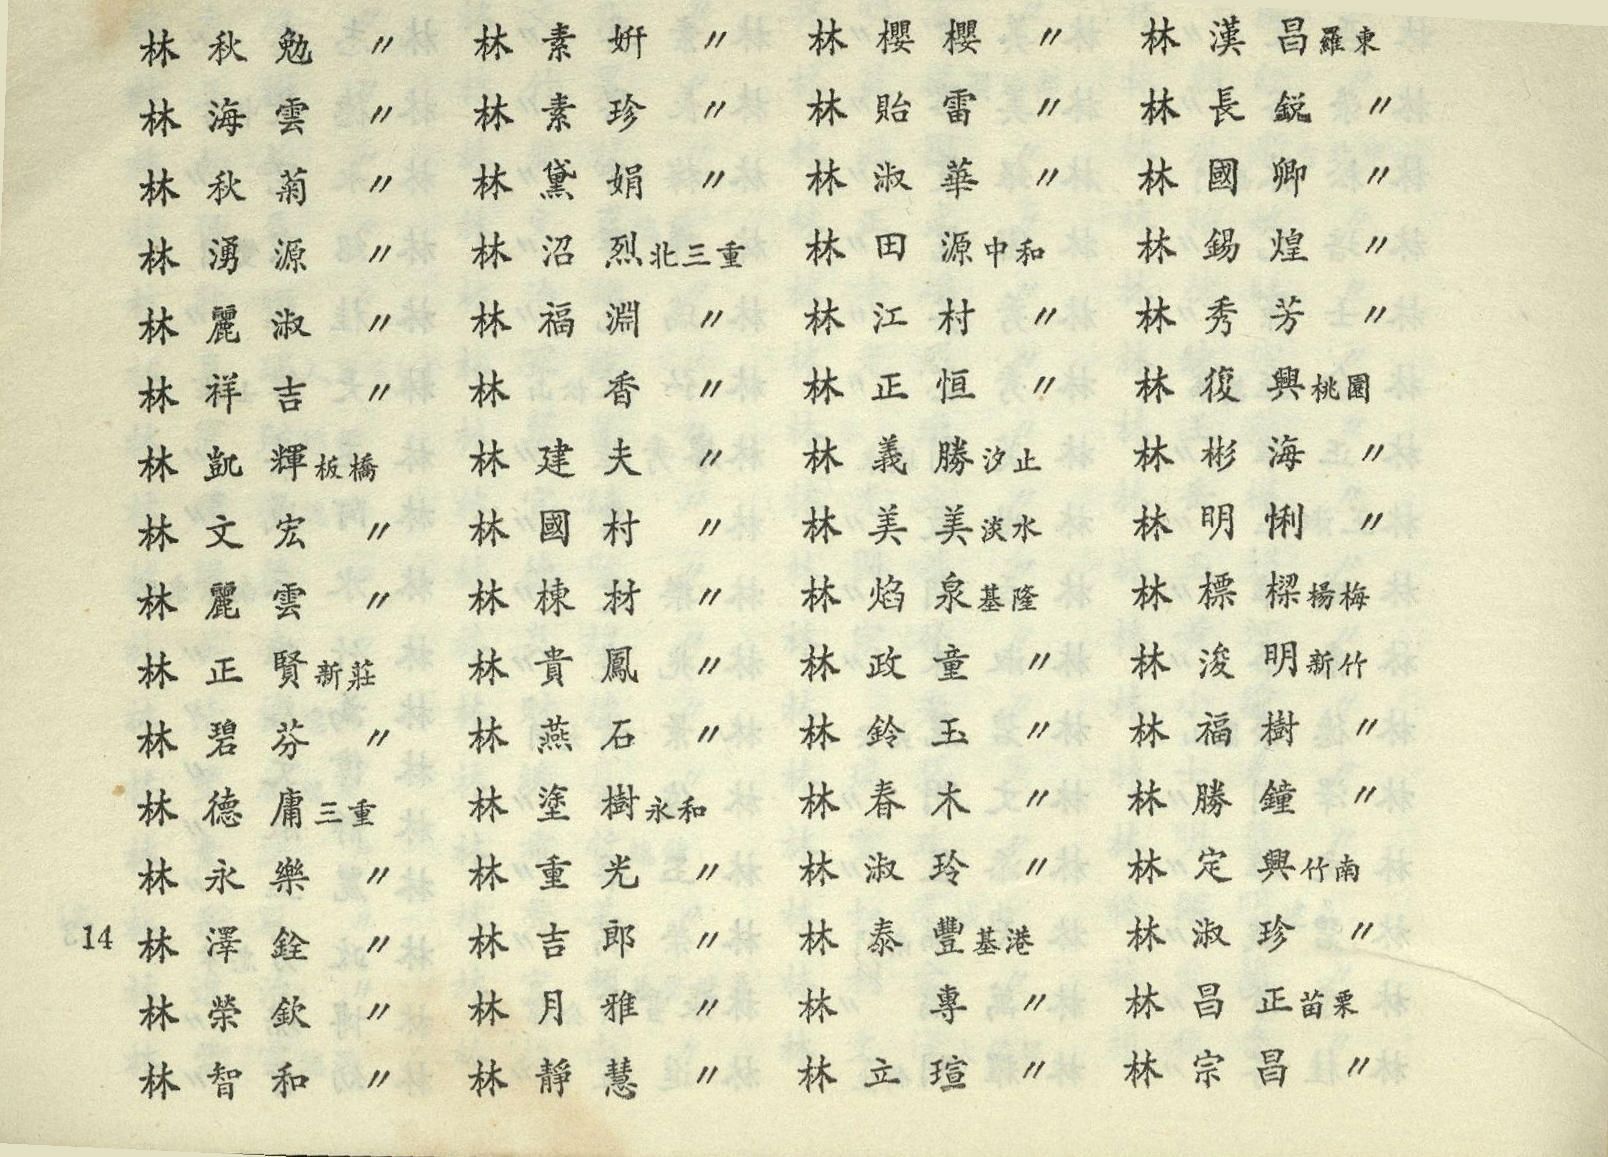 林秋勉 〃 林素姸 〃 林櫻櫻 〃 林漢昌羅東
林海雲 〃 林素珍 〃 林貽雷 〃 林長鋭 〃
林秋菊 〃 林黛娟 〃 林淑華 〃 林國卿 〃
林湧源 〃 林沼烈北三重 林田源中和 林錫煌 〃
林麗淑 〃 林福淵 〃 林江村 〃 林秀芳 〃
林祥吉 〃 林香 〃 林正恒 〃 林復興桃園
林凱輝板橋 林建夫 〃 林義勝汐止 林彬海 〃
林文宏 〃 林國村 〃 林美美淡水 林明悧 〃
林麗雲 〃 林棟材 〃 林焰泉基隆 林標樑楊梅
林正賢新莊 林貴鳳 〃 林政童 〃 林浚明新竹
林碧芬 〃 林燕石 〃 林鈴玉 〃 林福樹 〃
林德庸三重 林塗樹永和 林春木 〃 林勝鐘 〃
林永樂 〃 林重光 〃 林淑玲 〃 林定興竹南
14 林澤銓 〃 林吉郎 〃 林泰豐基港 林淑珍 〃
林榮欽 〃 林月雅 〃 林專 〃 林昌正苗栗
林智和 〃 林靜慧 〃 林立瑄 〃 林宗昌 〃